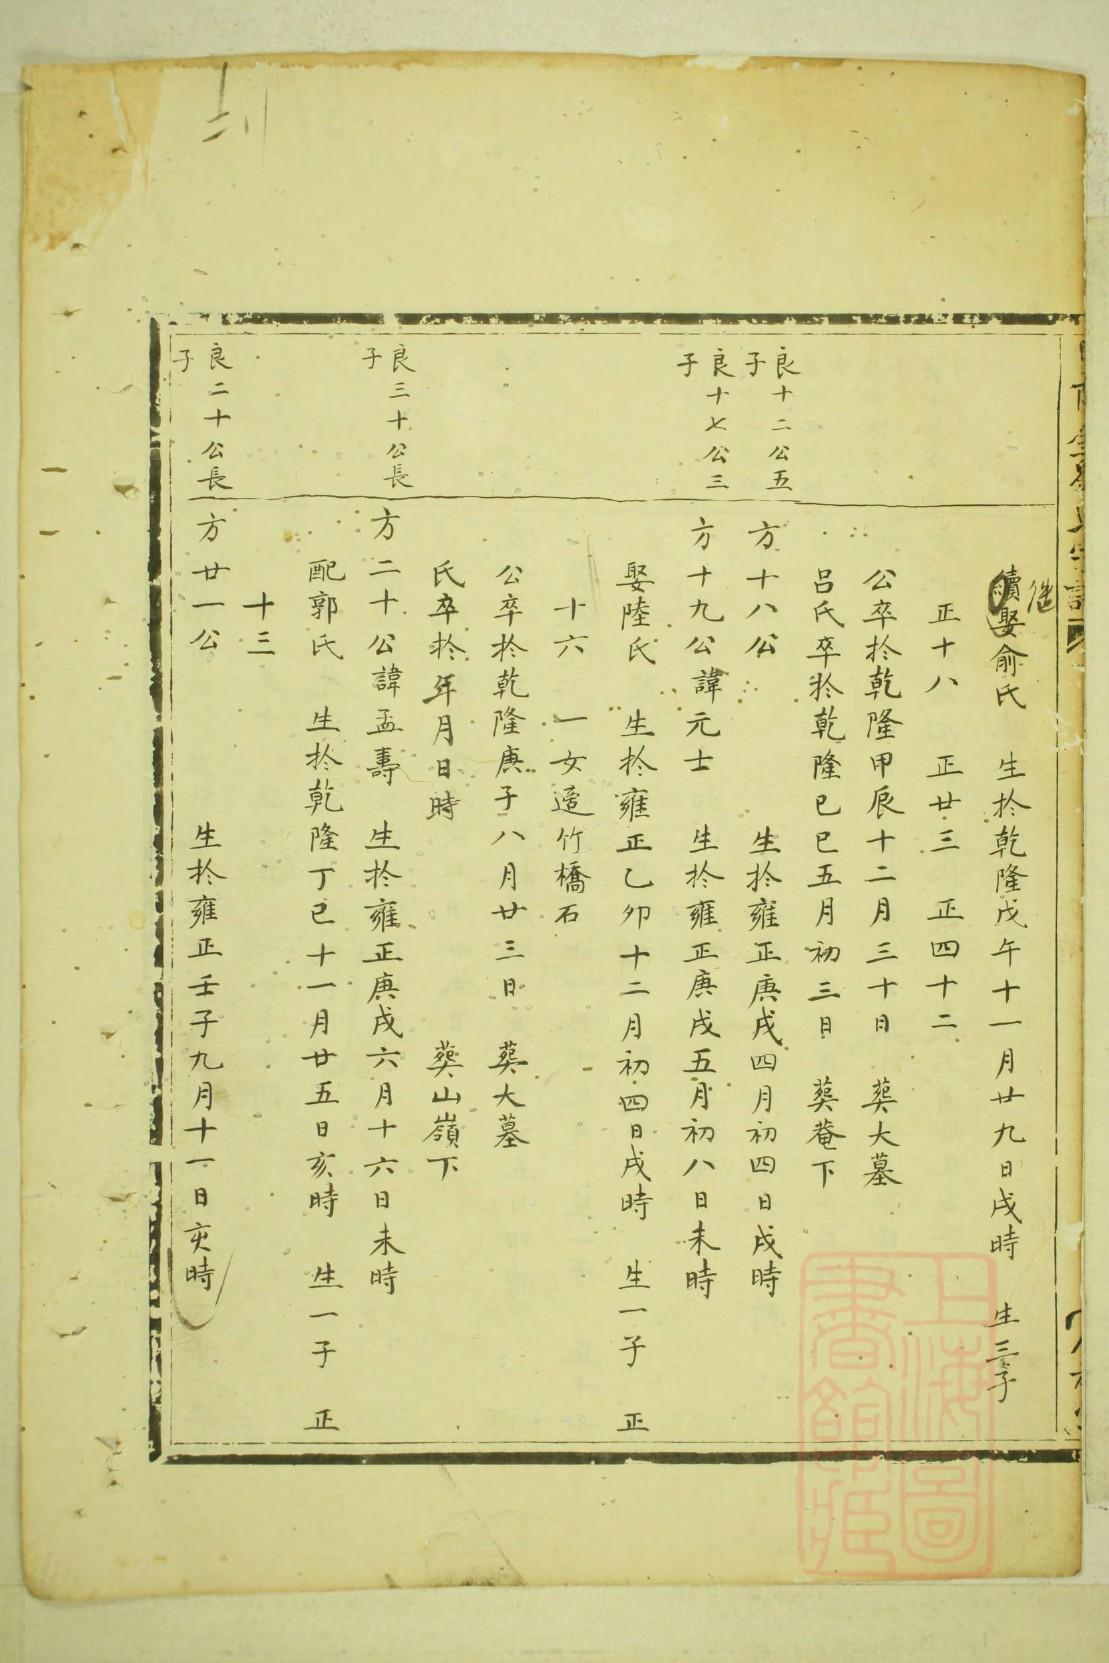 继
續娶俞氏　生於乾隆戊午十一月廿九日戌時　生三子
正十八　正廿三　正四十二
公卒於乾隆甲辰十二月三十日　葬大墓
呂氏卒於乾隆己巳五月初三日　葬菴下
良十二公五子
方十八公　生於雍正庚戌四月初四日戌時
良十七公三子
方十九公諱元士　生於雍正庚戌五月初八日未時
娶陸氏　生於雍正乙卯十二月初四日戌時　生一子　正
十六　一女適竹橋石
公卒於乾隆庚子八月廿三日　葬大墓
氏卒於年月日時　葬山嶺下
良三十公長子
方二十公諱孟壽　生於雍正庚戌六月十六日未時
配郭氏　生於乾隆丁巳十一月廿五日亥時　生一子　正
十三
良二十公長子
方廿一公　生於雍正壬子九月十一日亥時
上海圖書館藏